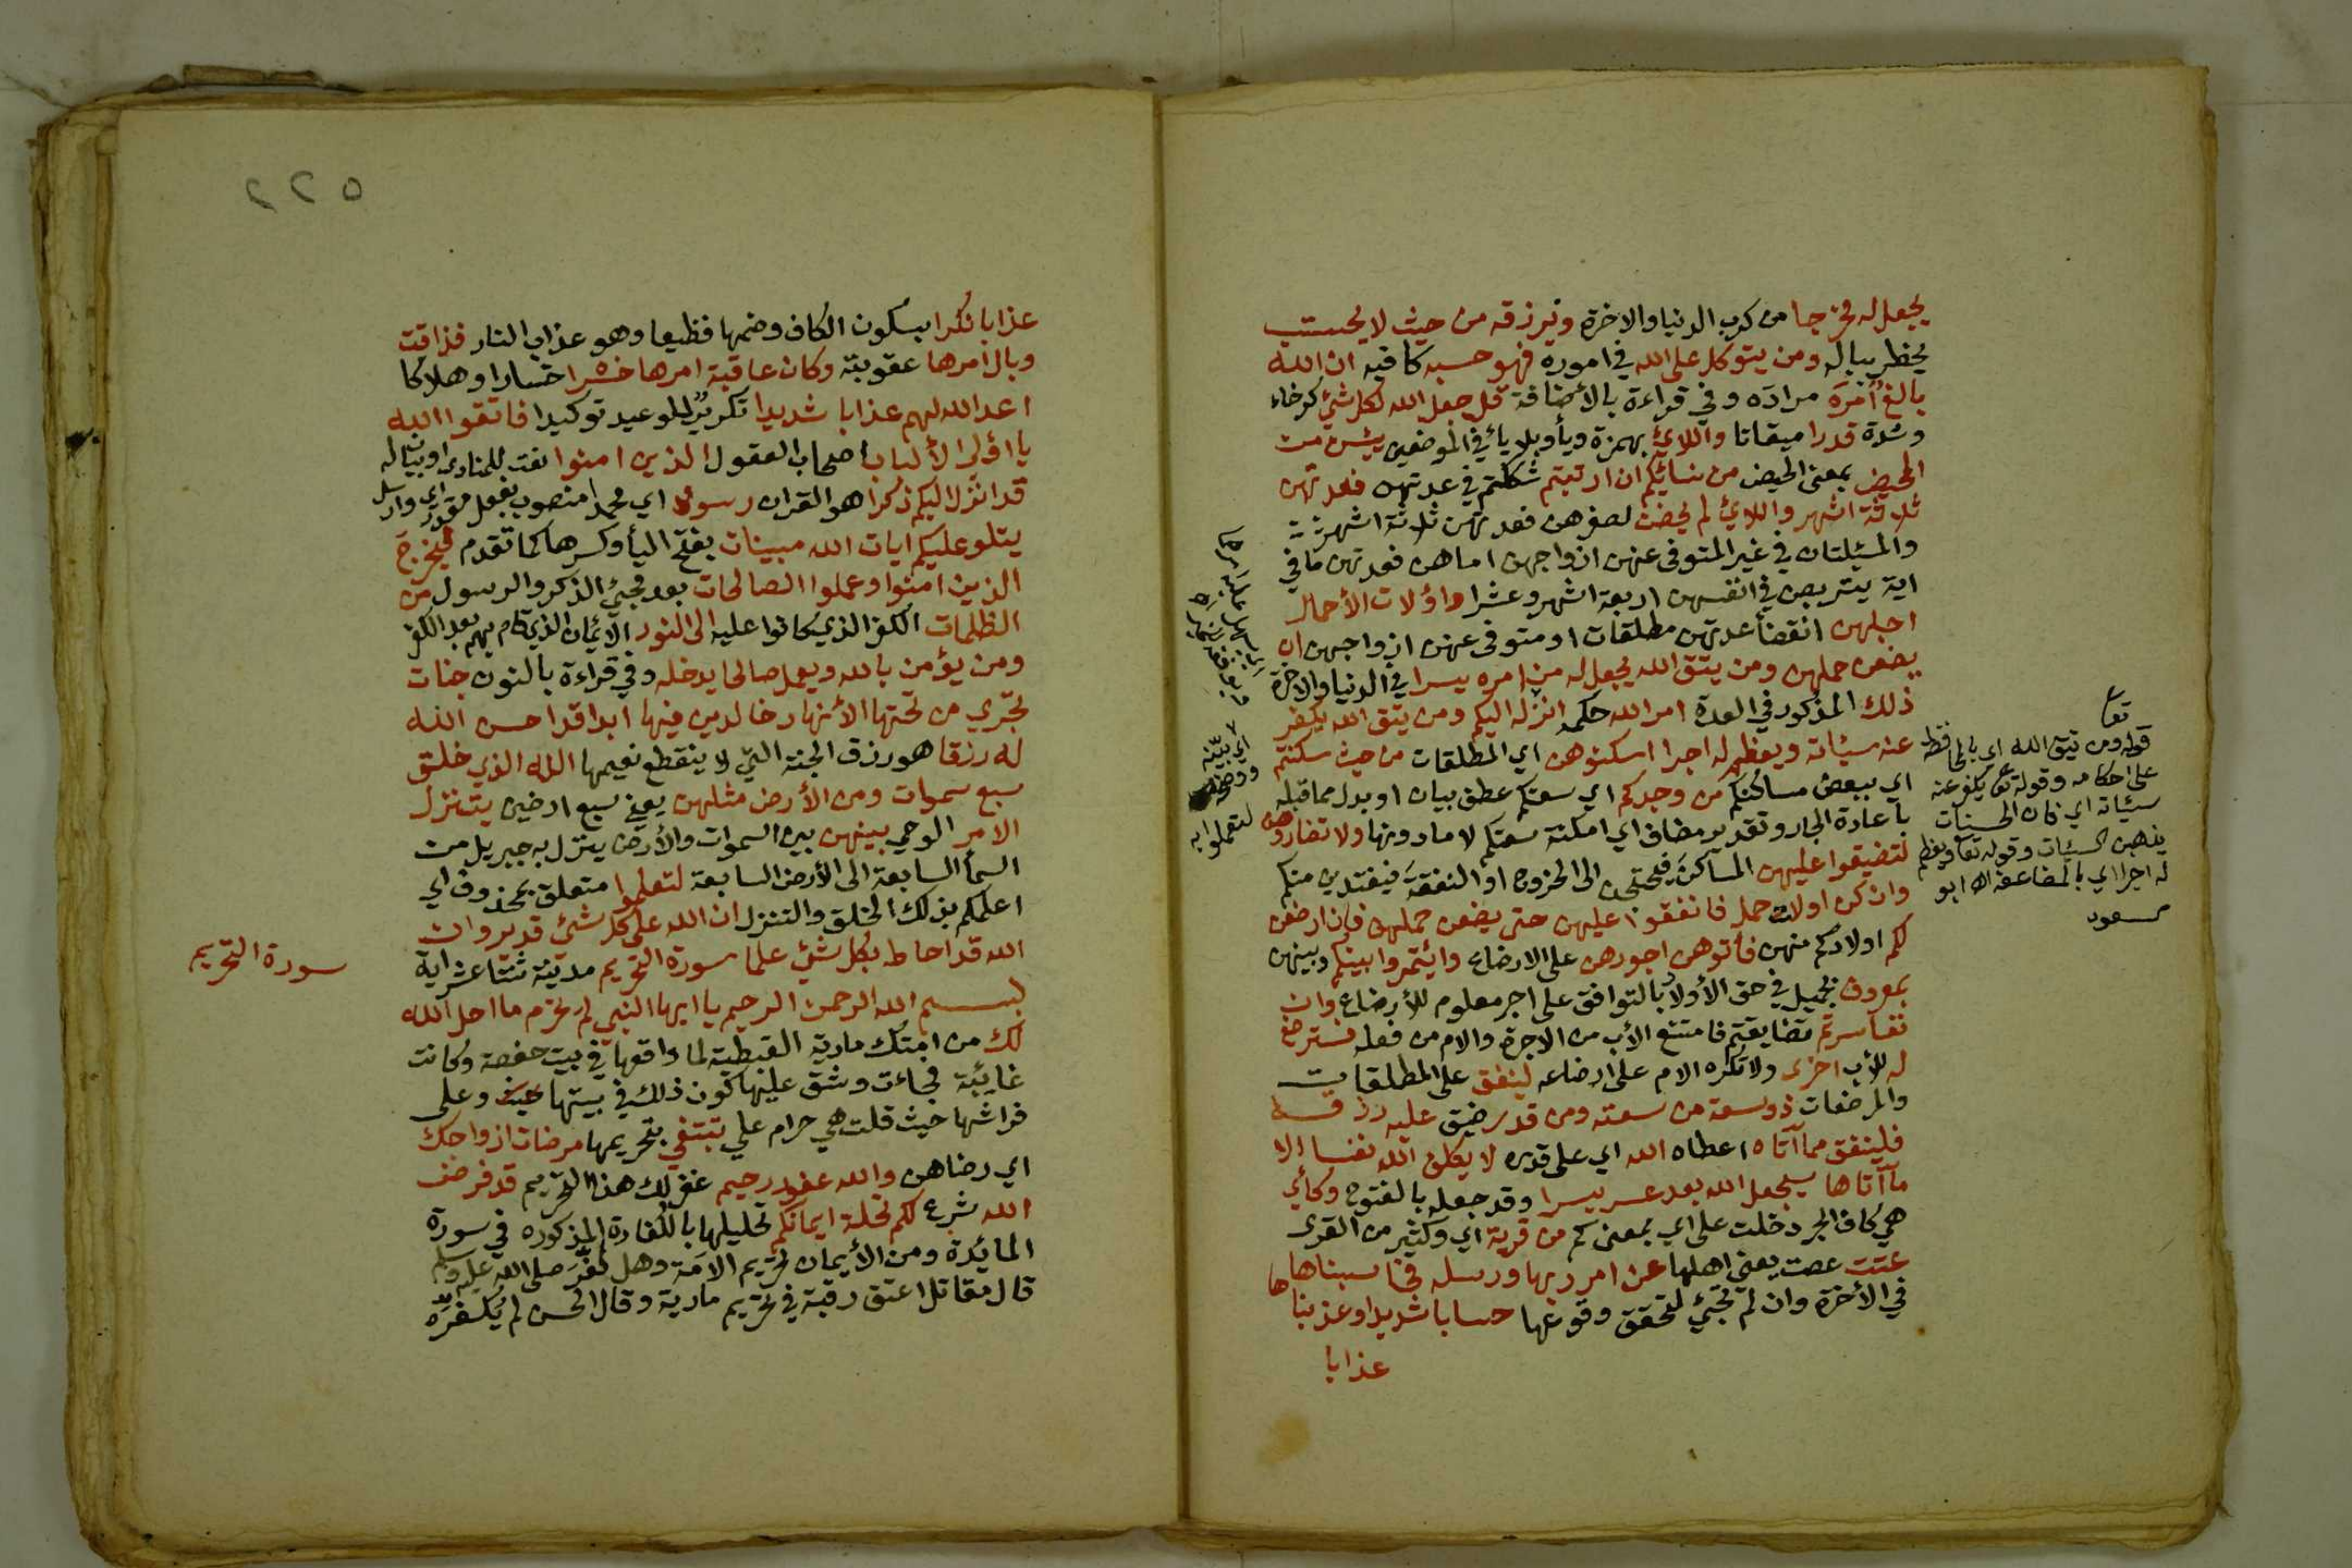 يجعل له مخرجا من كرب الدنيا والاخرة ويرزقه من حيث لا يحتسب
يخطر بباله ومن يتوكل على الله في اموره فهو حسبه كافيه ان الله
بالغ أمره مراده وفي قراءة بالأضافة قد جعل الله لكل شئ كرخاء
وشدة قدرا ميقاتا واللائ بهمزة ويأ وبلا يائ في الموضعين يئسن من
المحيض بمعنى الحيض من نسائكم ان ارتبتم شككتم في عدتهن فعدتهن
ثلاثة اشهر واللائ لم يحضن لصغرهن فعدتهن ثلاثة اشهر
والمسئلتان في غير المتوفى عنهن ازواجهن اما هن فعدتهن ما في
اية يتربصن في انفسهن اربعة اشهر وعشرا واولات الأحمال
اجلهن انقضأ عدتهن مطلقات او متوفى عنهن ازواجهن ان
يضعن حملهن ومن يتق الله يجعل له من امره يسرا في الدنيا والاخرة
ذلك المذكور في العدة امر الله حكمه انزله اليكم ومن يتق الله يكفر
عنه سيئاته ويعظم له اجرا اسكنوهن اي المطلقات من حيث سكنتم
اي ببعض مساكنكم من وجدكم اي سعتكم عطف بيان او بدل مما قبله
باعادة الجار وتقدير مضاف اي امكنة سعتكم لا ما دونها ولا تضاروهن
لتضيقوا عليهن المساكن فيحتجن الى الخروج او النفقة فيفتدين منكم
وان كن اولات حمل فانفقوا عليهن حتى يضعن حملهن فان ارضعن
لكم اولادكم منهن فأتوهن اجورهن على الارضاع وائتمروا بينكم وبينهن
بمعروف بجميل في حق الأولاد بالتوافق على اجر معلوم للأرضاع وان
تعاسرتم تضايقتم فامتنع الأب من الاجرة والام من فعله فسترضع
له للأب اخرى ولا تكره الام على ارضاعه لينفق على المطلقات
والمرضعات ذو سعة من سعته ومن قدر ضيق عليه رزقه
فلينفق مما آتاه اعطاه الله اي على قدره لا يكلف الله نفسا الا
ما آتاها سيجعل الله بعد عسر يسرا وقد جعله بالفتوح وكأي
هي كاف الجر دخلت على اي بمعنى كم من قرية اي وكثير من القرى
عتت عصت يعني اهلها عن امر ربها ورسله فحاسبناها
في الأخرة وان لم تجئ لتحقق وقوعها حسابا شديدا وعذبناها
عذابا
تعا
قوله ومن يتق الله اي بالمحافظة
على احكامه وقوله تعا يكفر عنه
سيئاته اي فان الحسنات
يذهبن السيئات وقوله تعا ويعظم
له اجرا اي بالمضاعفة اه ابو
سعود
اي بينه
ووضحه
لتعملوا به
٢٢٥
عذابا نكرا بسكون الكاف وضمها فظيعا وهو عذاب النار فذاقت
وبال امرها عقوبته وكان عاقبة امرها خسرا خسارا وهلاكا
اعد الله لهم عذابا شديدا تكرير للوعيد توكيدا فاتقوا الله
يا اولى الألباب اصحاب العقول الذين امنوا نعت للمنادى او بيان له
قد انزل اليكم ذكرا هو القران رسولا اي محمدا منصوب بفعل مقدر اي وارسل
يتلو عليكم ايات الله مبينات بفتح اليأ وكسرها كما تقدم ليخرج
الذين امنوا وعملوا الصالحات بعد مجئ الذكر والرسول من
الظلمات الكفر الذي كانوا عليه الى النور الأيمان الذي قام بهم بعد الكفر
ومن يؤمن بالله ويعمل صالحا يدخله وفي قراءة بالنون جنات
تجري من تحتها الأنهار خالدين فيها ابدا قد احسن الله
له رزقا هو رزق الجنة التي لا ينقطع نعيمها الله الذي خلق
سبع سموات ومن الأرض مثلهن يعني سبع ارضين يتنزل
الامر الوحي بينهن بين السموات والأرض ينزل به جبريل من
السمأ السابعة الى الأرض السابعة لتعلموا متعلق بمحذوف اي
اعلمكم بذلك الخلق والتنزل ان الله على كل شئ قدير وان
الله قد احاط بكل شئ علما سورة التحريم مدنية ثنتا عشر اية
بسم الله الرحمن الرحيم يا ايها النبي لم تحرم ما احل الله
لك من امتك مارية القبطية لما واقعها في بيت حفصة وكانت
غايبة فجاءت وشق عليها كون ذلك في بيتها وعلى
فراشها حيث قلت هي حرام علي تبتغي بتحريمها مرضات ازواجك
اي رضاهن والله غفور رحيم غفر لك هذا التحريم قد فرض
الله شرع لكم تحلة ايمانكم تحليلها بالكفارة المذكوره في سورة
المائدة ومن الأيمان تحريم الامة وهل كفر صلى الله عليه وسلم
قال مقاتل اعتق رقبة في تحريم مارية وقال الحسن لم يكفر
سورة التحريم